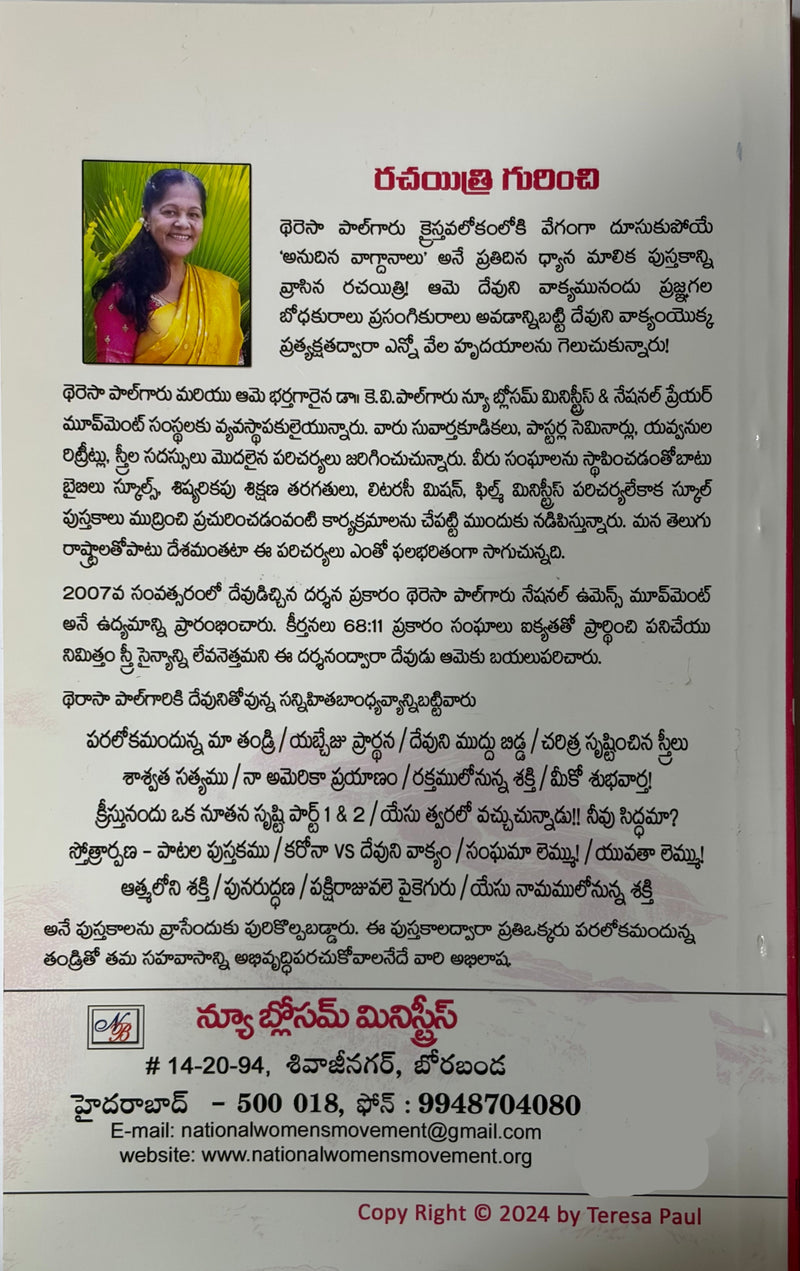 రచయిత్రి గురించి
థెరెసా పాల్‌గారు క్రైస్తవలోకంలోకి వేగంగా దూసుకుపోయే
'అనుదిన వాగ్దానాలు' అనే ప్రతిదిన ధ్యాన మాలిక పుస్తకాన్ని
వ్రాసిన రచయిత్రి! ఆమె దేవుని వాక్యమునందు ప్రజ్ఞగల
బోధకురాలు ప్రసంగికురాలు అవడాన్నిబట్టి దేవుని వాక్యంయొక్క
ప్రత్యక్షతద్వారా ఎన్నో వేల హృదయాలను గెలుచుకున్నారు!
థెరెసా పాల్‌గారు మరియు ఆమె భర్తగారైన డా॥ కె.వి.పాల్‌గారు న్యూ బ్లోసమ్ మినిస్ట్రీస్ & నేషనల్ ప్రేయర్
మూవ్‌మెంట్ సంస్థలకు వ్యవస్థాపకులైయున్నారు. వారు సువార్తకూడికలు, పాస్టర్ల సెమినార్లు, యవ్వనుల
రిట్రీట్లు, స్త్రీల సదస్సులు మొదలైన పరిచర్యలు జరిగించుచున్నారు. వీరు సంఘాలను స్థాపించడంతోబాటు
బైబిలు స్కూల్స్, శిష్యరికపు శిక్షణ తరగతులు, లిటరసీ మిషన్, ఫిల్మ్ మినిస్ట్రీస్ పరిచర్యలేకాక స్కూల్
పుస్తకాలు ముద్రించి ప్రచురించడంవంటి కార్యక్రమాలను చేపట్టి ముందుకు నడిపిస్తున్నారు. మన తెలుగు
రాష్ట్రాలతోపాటు దేశమంతటా ఈ పరిచర్యలు ఎంతో ఫలభరితంగా సాగుచున్నది.
2007వ సంవత్సరంలో దేవుడిచ్చిన దర్శన ప్రకారం థెరెసా పాల్‌గారు నేషనల్ ఉమెన్స్ మూవ్‌మెంట్
అనే ఉద్యమాన్ని ప్రారంభించారు. కీర్తనలు 68:11 ప్రకారం సంఘాలు ఐక్యతతో ప్రార్థించి పనిచేయు
నిమిత్తం స్త్రీ సైన్యాన్ని లేవనెత్తమని ఈ దర్శనంద్వారా దేవుడు ఆమెకు బయలుపరిచారు.
థెరాసా పాల్‌గారికి దేవునితోవున్న సన్నిహితబాంధ్యవ్యాన్నిబట్టివారు
పరలోకమందున్న మా తండ్రి / యబ్బేజు ప్రార్థన / దేవుని ముద్దు బిడ్డ / చరిత్ర సృష్టించిన స్త్రీలు
శాశ్వత సత్యము / నా అమెరికా ప్రయాణం / రక్తములోనున్న శక్తి / మీకో శుభవార్త!
క్రీస్తునందు ఒక నూతన సృష్టి పార్ట్ 1 & 2 / యేసు త్వరలో వచ్చుచున్నాడు!! నీవు సిద్ధమా?
స్తోత్రార్పణ – పాటల పుస్తకము / కరోనా VS దేవుని వాక్యం / సంఘమా లెమ్ము! / యువతా లెమ్ము!
ఆత్మలోని శక్తి / పునరుద్ధణ / పక్షిరాజువలె పైకెగురు / యేసు నామములోనున్న శక్తి
అనే పుస్తకాలను వ్రాసేందుకు పురికొల్పబడ్డారు. ఈ పుస్తకాలద్వారా ప్రతిఒక్కరు పరలోకమందున్న
తండ్రితో తమ సహవాసాన్ని అభివృద్ధిపరచుకోవాలనేదే వారి అభిలాష.
NB
న్యూ బ్లోసమ్ మినిస్ట్రీస్
# 14-20-94, శివాజీనగర్, బోరబండ
హైదరాబాద్ - 500 018, ఫోన్ : 9948704080
E-mail: nationalwomensmovement@gmail.com
website: www.nationalwomensmovement.org
Copy Right © 2024 by Teresa Paul